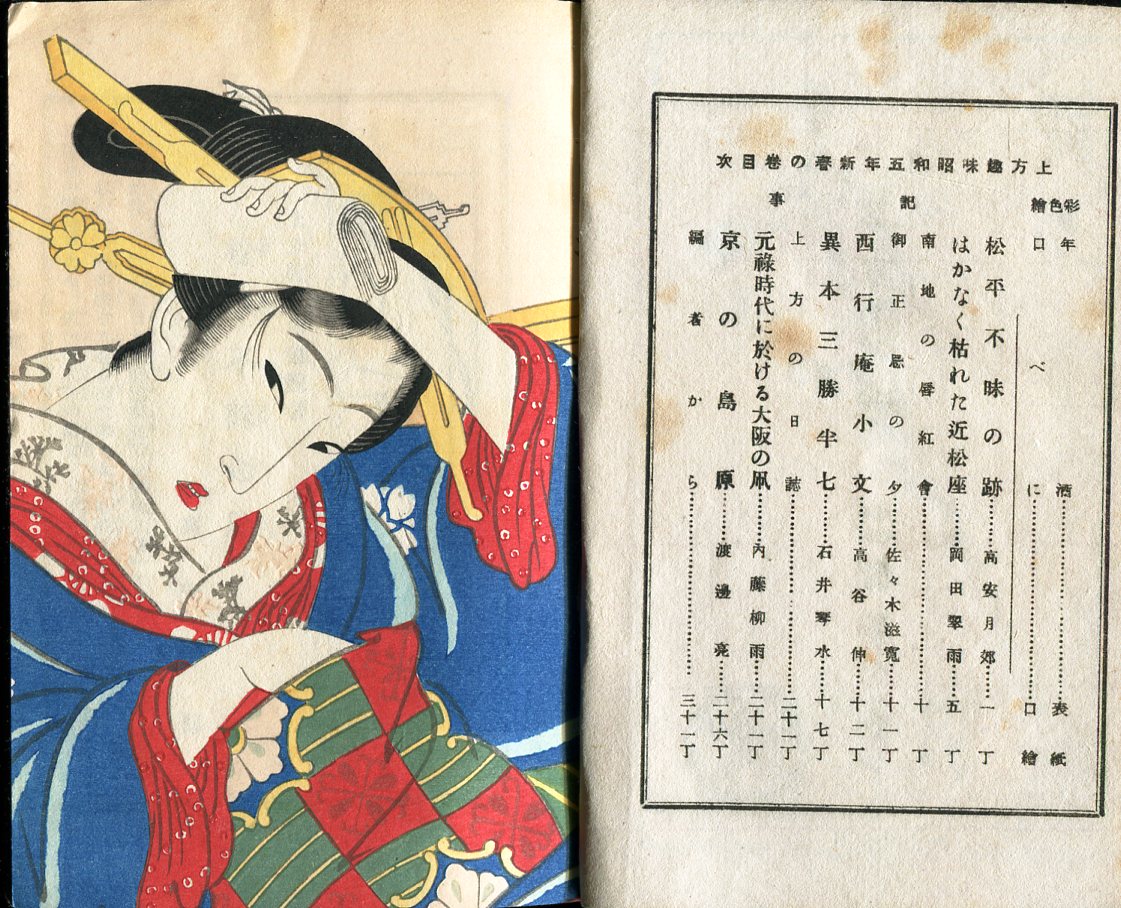 上方趣味昭和五年新春の巻目次
彩色繪
年酒……表紙
口べに……口繪
記事
松平不昧の跡……高安月郊……一丁
はかなく枯れた近松座……岡田翠雨……五丁
南地の唇紅會……十丁
御正忌の夕……佐々木滋寛……十一丁
西行庵小文……高谷伸……十二丁
異本三勝半七……石井琴水……十七丁
上方の日誌……二十一丁
元祿時代に於ける大阪の凧……内藤柳雨……二十一丁
京の島原……渡邊亮……二十六丁
編者から……三十一丁